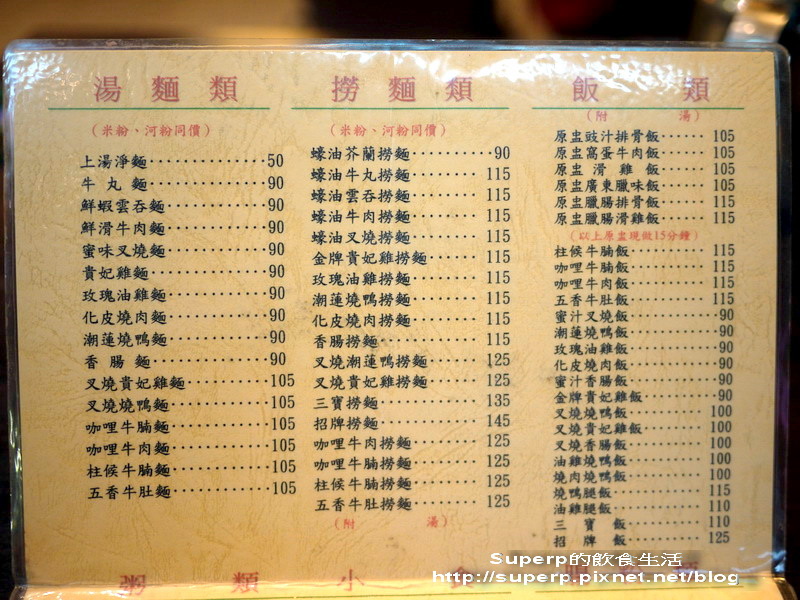 湯麵類
（米粉、河粉同價）
上湯淨麵 50
牛丸麵 90
鮮蝦雲吞麵 90
鮮滑牛肉麵 90
蜜味叉燒麵 90
貴妃雞麵 90
玫瑰油雞麵 90
化皮燒肉麵 90
潮蓮燒鴨麵 90
香腸麵 90
叉燒貴妃雞麵 105
叉燒燒鴨麵 105
咖哩牛腩麵 105
咖哩牛肉麵 105
柱候牛腩麵 105
五香牛肚麵 105
撈麵類
（米粉、河粉同價）
蠔油芥蘭撈麵 90
蠔油牛丸撈麵 115
蠔油雲吞撈麵 115
蠔油牛肉撈麵 115
蠔油叉燒撈麵 115
金牌貴妃雞撈麵 115
玫瑰油雞撈麵 115
潮蓮燒鴨撈麵 115
化皮燒肉撈麵 115
香腸撈麵 115
叉燒潮蓮鴨撈麵 125
叉燒貴妃雞撈麵 125
三寶撈麵 135
招牌撈麵 145
咖哩牛肉撈麵 125
咖哩牛腩撈麵 125
柱候牛腩撈麵 125
五香牛肚撈麵 125
（附湯）
飯類
（附湯）
原盅豉汁排骨飯 105
原盅窩蛋牛肉飯 105
原盅滑雞飯 105
原盅廣東臘味飯 105
原盅臘腸排骨飯 115
原盅臘腸滑雞飯 115
（以上原盅現做15分鐘）
柱候牛腩飯 115
咖哩牛腩飯 115
咖哩牛肉飯 115
五香牛肚飯 115
蜜汁叉燒飯 90
潮蓮燒鴨飯 90
玫瑰油雞飯 90
化皮燒肉飯 90
蜜汁香腸飯 90
金牌貴妃雞飯 90
叉燒燒鴨飯 100
叉燒貴妃雞飯 100
叉燒香腸飯 100
油雞燒鴨飯 100
燒肉燒鴨飯 100
燒鴨腿飯 115
油雞腿飯 110
三寶飯 110
招牌飯 125
粥類小食
Superp的飲食生活
http://superp.pixnet.net/blog